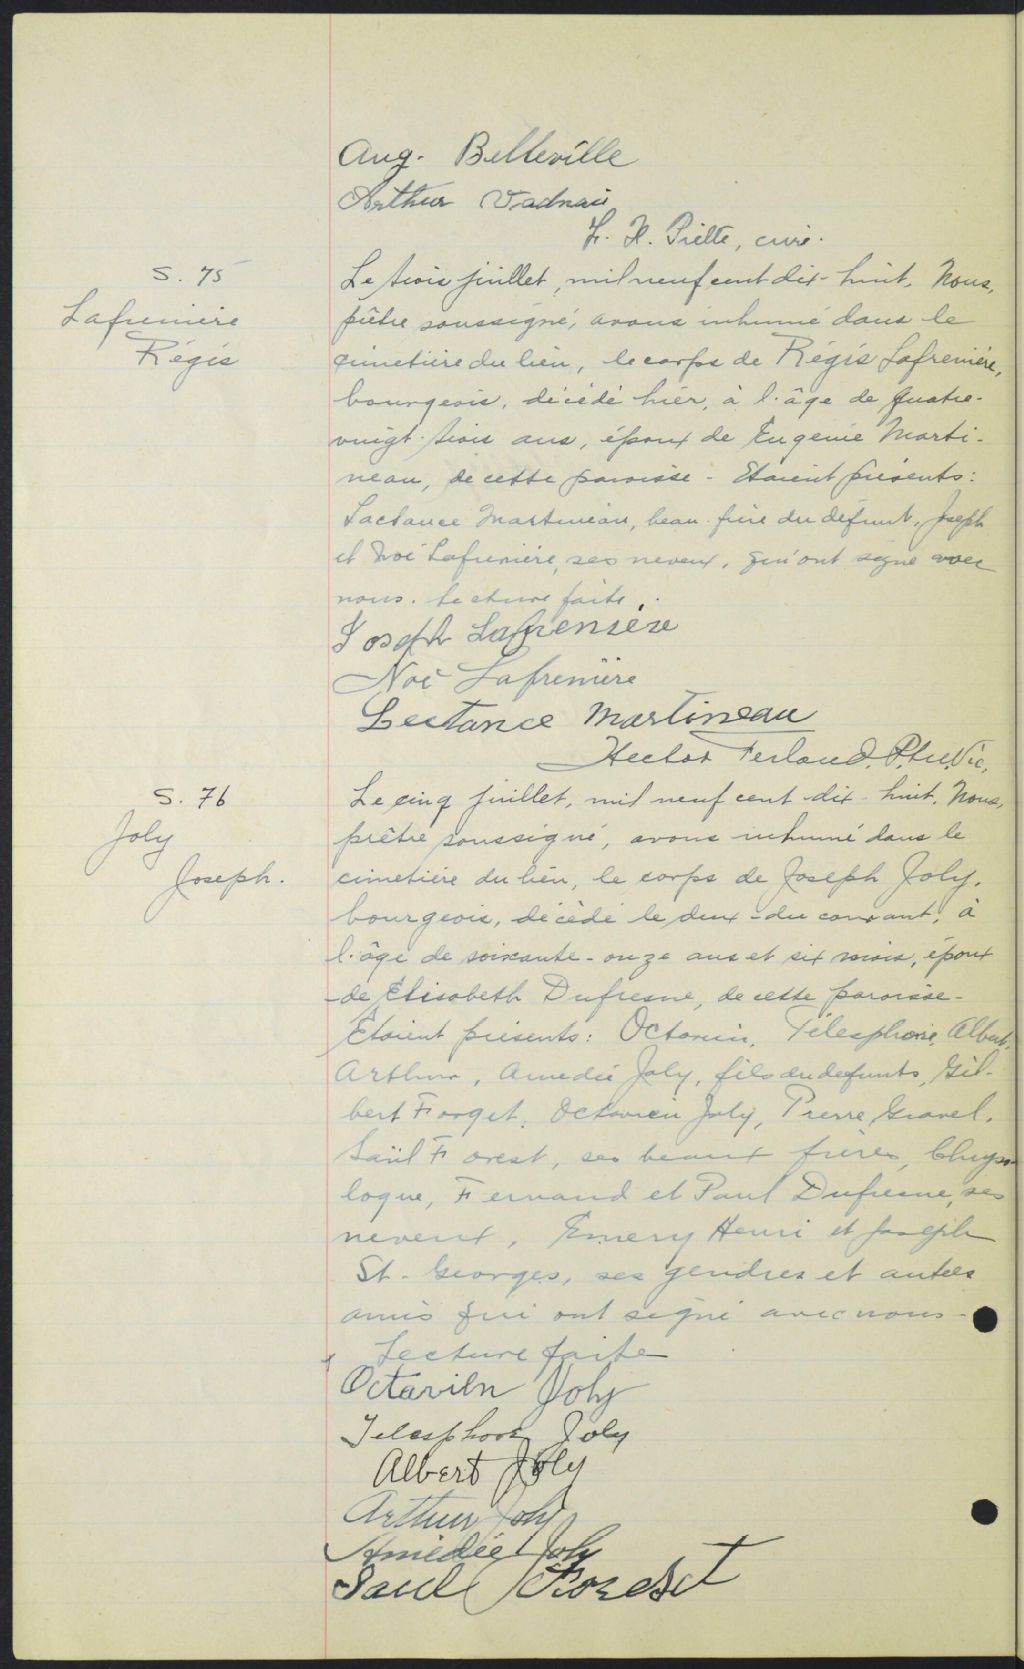 Aug. Belleville
Arthur Vadnais
L. H. Piette, curé.
S. 75
Lafrenière
Régis
Le trois juillet, mil neuf cent dix-huit, Nous,
prêtre soussigné, avons inhumé dans le
cimetière du lieu, le corps de Régis Lafrenière,
bourgeois, décédé hier, à l'âge de quatre-
vingt-trois ans, époux de Eugenie Marti-
neau, de cette paroisse - Etaient présents:
Lactance Martineau, beau-frère du défunt, Joseph
et Noé Lafrenière, ses neveux, qui ont signé avec
nous. Lecture faite.
Joseph Lafrenière
Noé Lafrenière
Lectance Martineau
Hector Ferland, Ptre Vic,
S. 76
Joly
Joseph.
Le cinq juillet, mil neuf cent dix-huit. Nous,
prêtre soussigné, avons inhumé dans le
cimetière du lieu, le corps de Joseph Joly,
bourgeois, décédé le deux du courant, à
l'âge de soixante-onze ans et six mois, époux
de Elisabeth Dufresne, de cette paroisse-
Etaient présents: Octavien, Télesphore, Albert,
Arthur, Amedée Joly, fils du defunts, Gil-
bert Forget, Octavien Joly, Pierre Gravel,
Saül Forest, ses beaux frères, Chryso-
logue, Fernand et Paul Dufresne, ses
neveux, Emery Henri et Joseph
St-Georges, ses gendres et autres
amis qui ont signé avec nous-
Lecture faite
Octavien Joly
Telesphore Joly
Albert Joly
Arthur Joly
Amédée Joly
Saul Forest